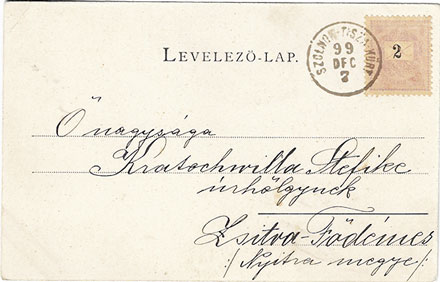 LEVELEZŐ-LAP.
SZOLNOK-TISZA-KÜRT
99
DEC
7
2
Ő nagysága
Kratochwilla Stefike
úrhölgynek
Zsitva-Födémes
/: Nyitra megye :/